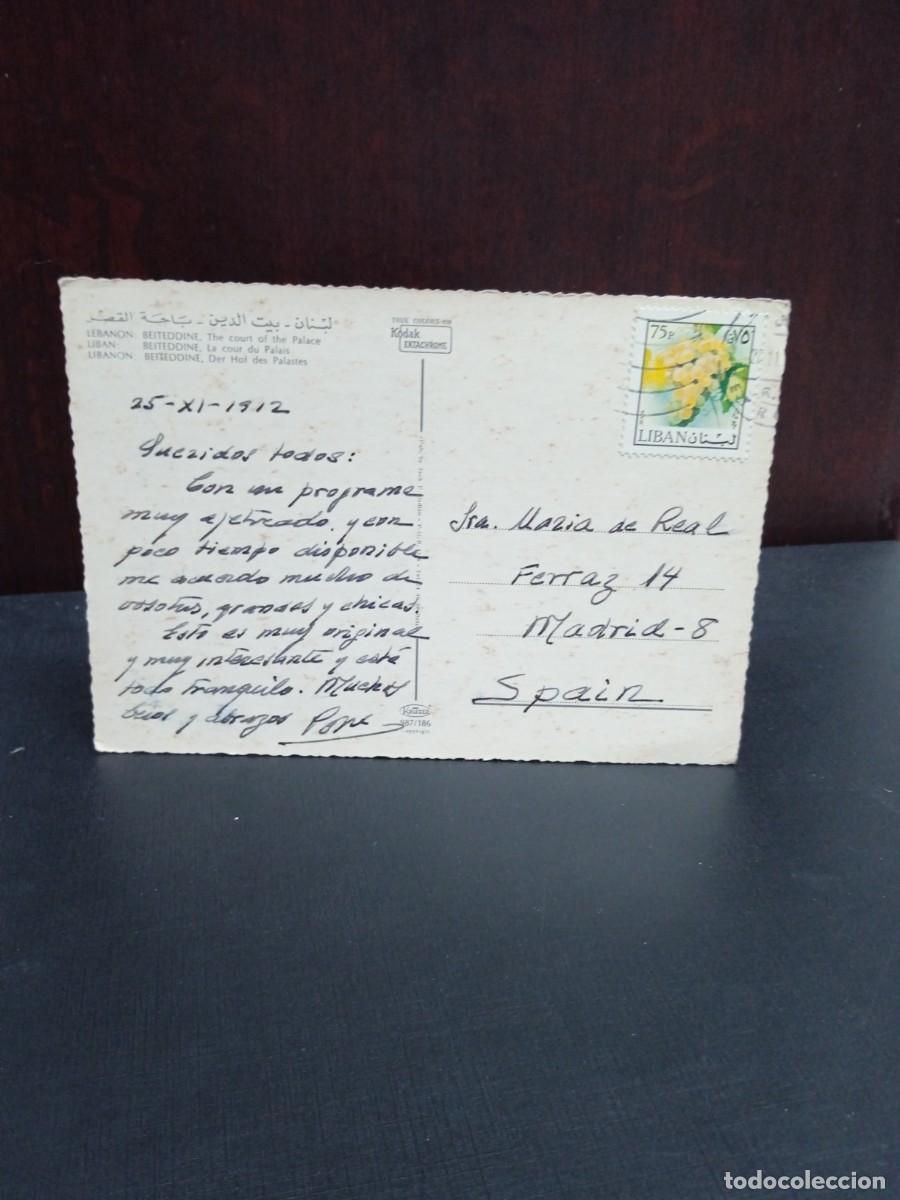 لبنان - بيت الدين - باحة القصر
LEBANON: BEITEDDINE, The court of the Palace
LIBAN: BEITEDDINE, La cour du Palais
LIBANON: BEITEDDINE, Der Hof des Palastes
TRUE COLORS ON
Kodak
EKTACHROME
75P
٧٥
LIBAN لبنان
25-XI-1912
Queridos todos:
Con un programa
muy ajetreado, y con
poco tiempo disponible
me acuerdo mucho de
vosotros, grandes y chicas.
Esto es muy original
y muy interesante y está
todo tranquilo. Muchos
besos y abrazos Pepe
Sra. Maria de Real
Ferraz 14
Madrid-8
Spain
KRUGER
987/186
todocoleccion